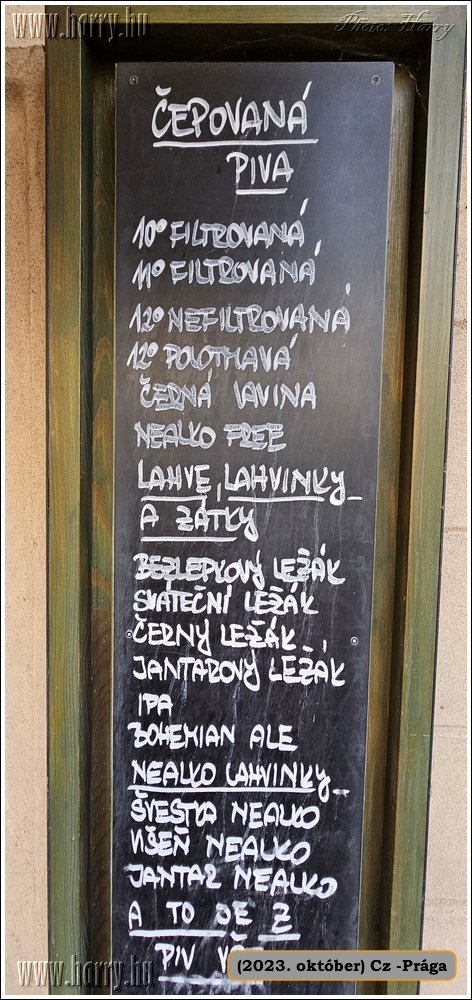 www.harry.hu
Photo: Harry
ČEPOVANÁ
PIVA
10° FILTROVANÁ
11° FILTROVANÁ
12° NEFILTROVANÁ
12° POLOTMAVÁ
ČERNÁ LAVINA
NEALKO FREE
LAHVE, LAHVINKY
A ZÁTKY
BEZLEPKOVÝ LEŽÁK
SVATEČNÍ LEŽÁK
ČERNÝ LEŽÁK
JANTAROVÝ LEŽÁK
IPA
BOHEMIAN ALE
NEALKO LAHVINKY
ŠVESTKA NEALKO
VIŠEŇ NEALKO
JANTAR NEALKO
A TO JE Z
PIV
www.harry.hu
(2023. október) Cz -Prága